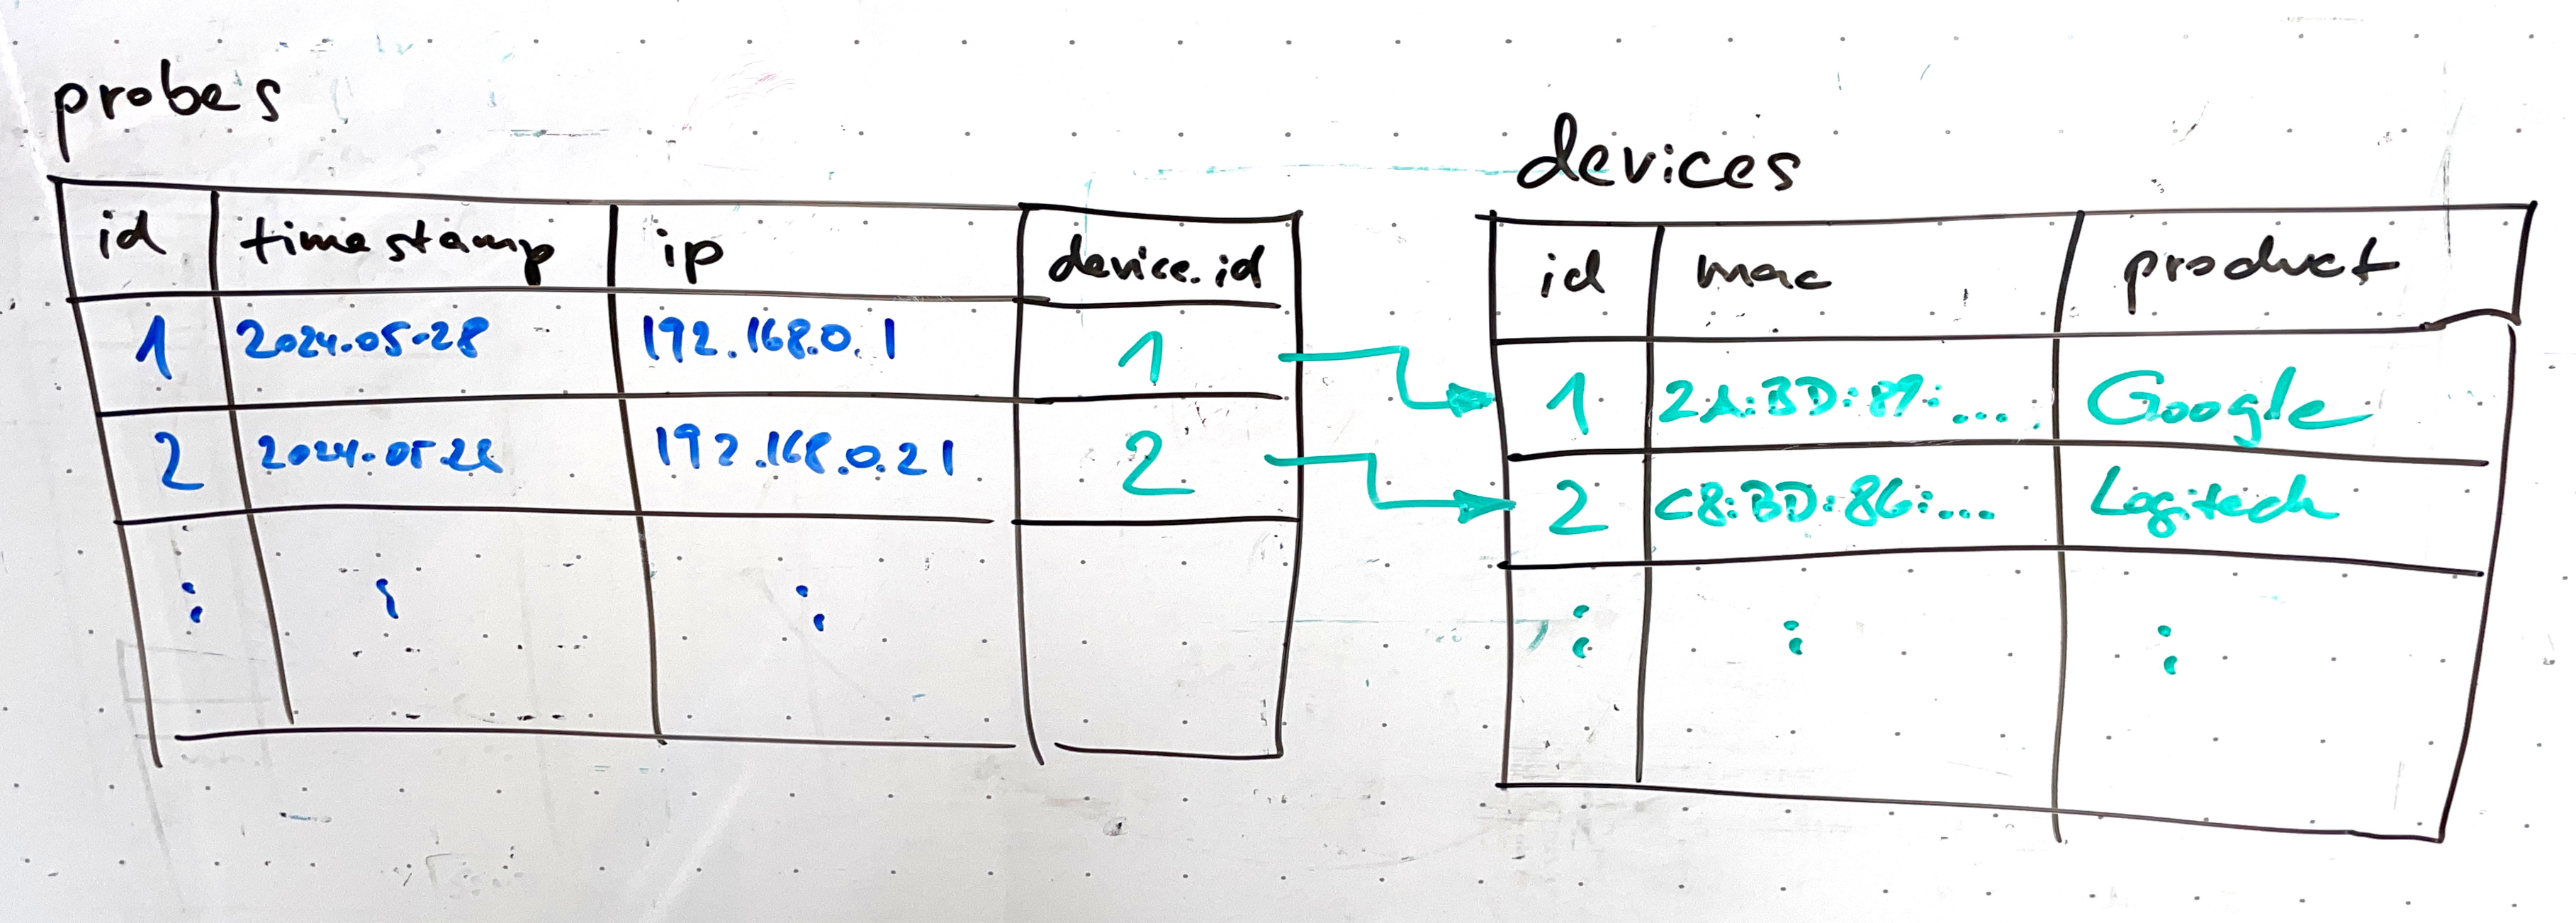 probes
id timestamp ip device.id
1 2024.05.28 192.168.0.1 1
2 2024.05.28 192.168.0.21 2
devices
id mac product
1 2A:BD:87:... Google
2 C8:BD:86:... Logitech